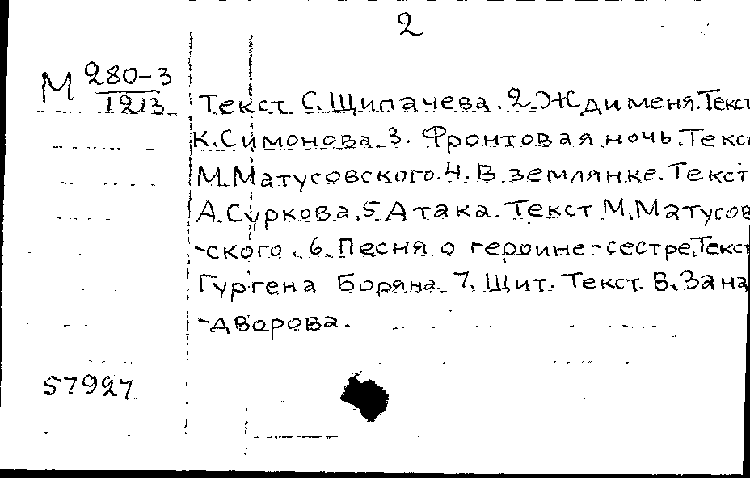 2
М 280-3
1213
Текст С. Щипачева. 2. Жди меня. Текст
К. Симонова. 3. Фронтовая ночь. Текс
М. Матусовского. 4. В землянке. Текст
А. Суркова. 5. Атака. Текст М. Матусов
-ского. 6. Песня о героине-сестре. Текст
Гургена Боряна. 7. Щит. Текст В. Зана
-дворова.
57927